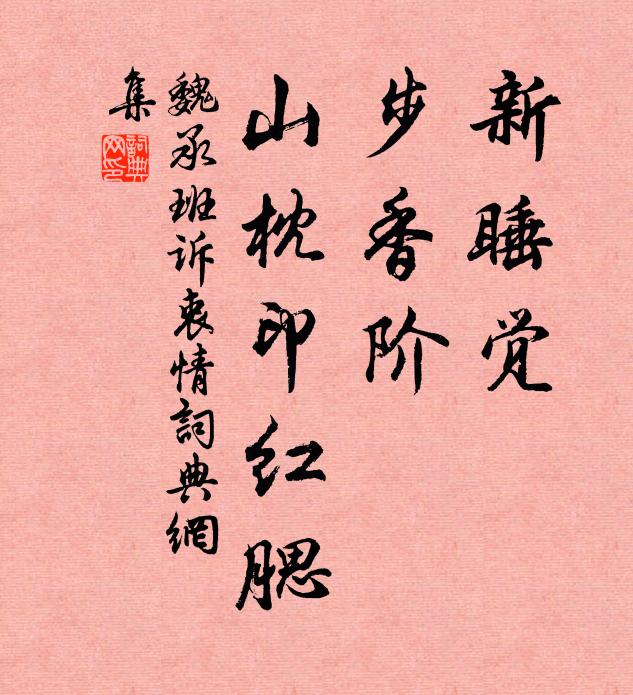 新睡觉
步香阶
山枕印红腮
魏承班诉衷情詞典網
集
詞典
网印